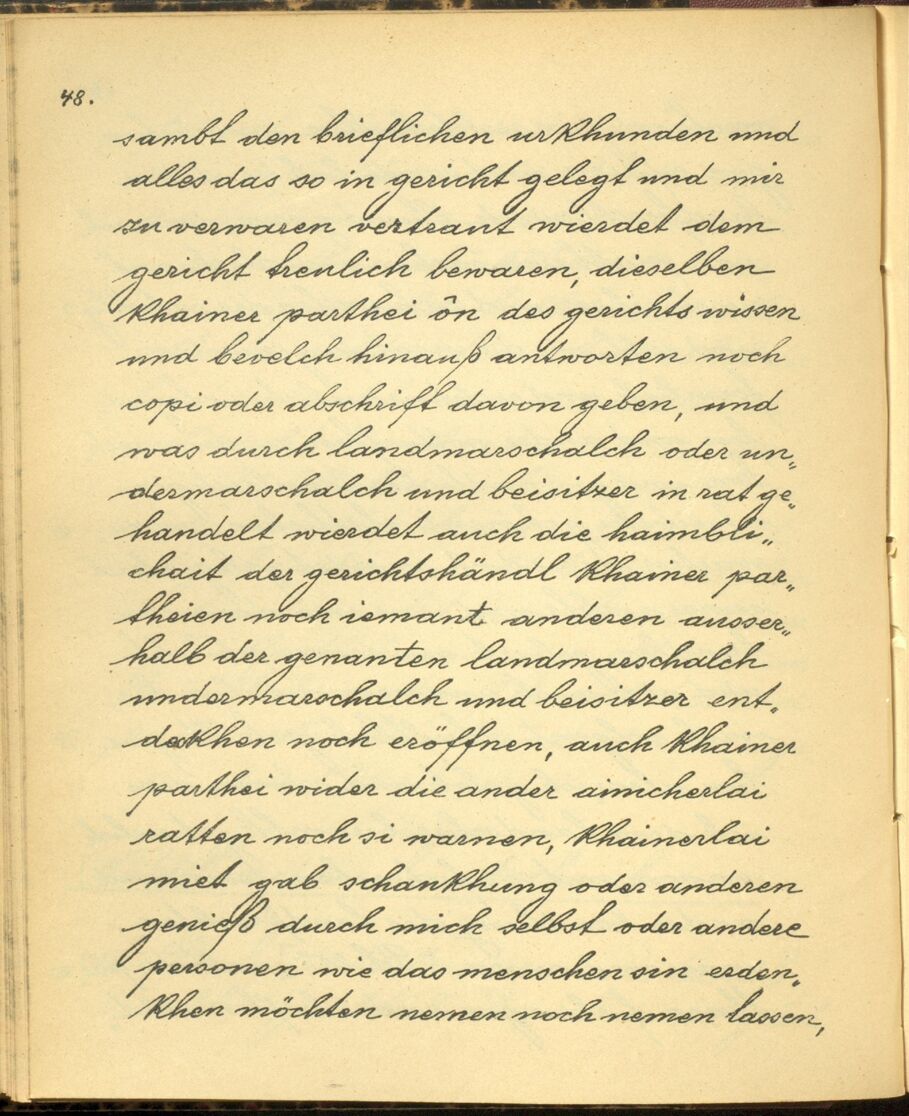 48.
sambt den brieflichen urkhunden und
alles das so in gericht gelegt und mir
zu verwaren vertraut wierdet dem
gericht treulich bewaren, dieselben
khainer parthei ôn des gerichts wissen
und bevelch hinauß antworten noch
copi oder abschrift davon geben, und
was durch landmarschalch oder un„
dermarschalch und beisitzer in rat ge„
handelt wierdet auch die haimbli„
chait der gerichtshändl khainer par„
theien noch iemant anderen ausser„
halb der genanten landmarschalch
undermarschalch und beisitzer ent„
deckhen noch eröffnen, auch khainer
parthei wider die ander ainicherlai
ratten noch si warnen, khainerlai
miet gab schankhung oder anderen
genieß durch mich selbst oder andere
personen wie das menschen sin erden„
khen möchten nemen noch nemen lassen,